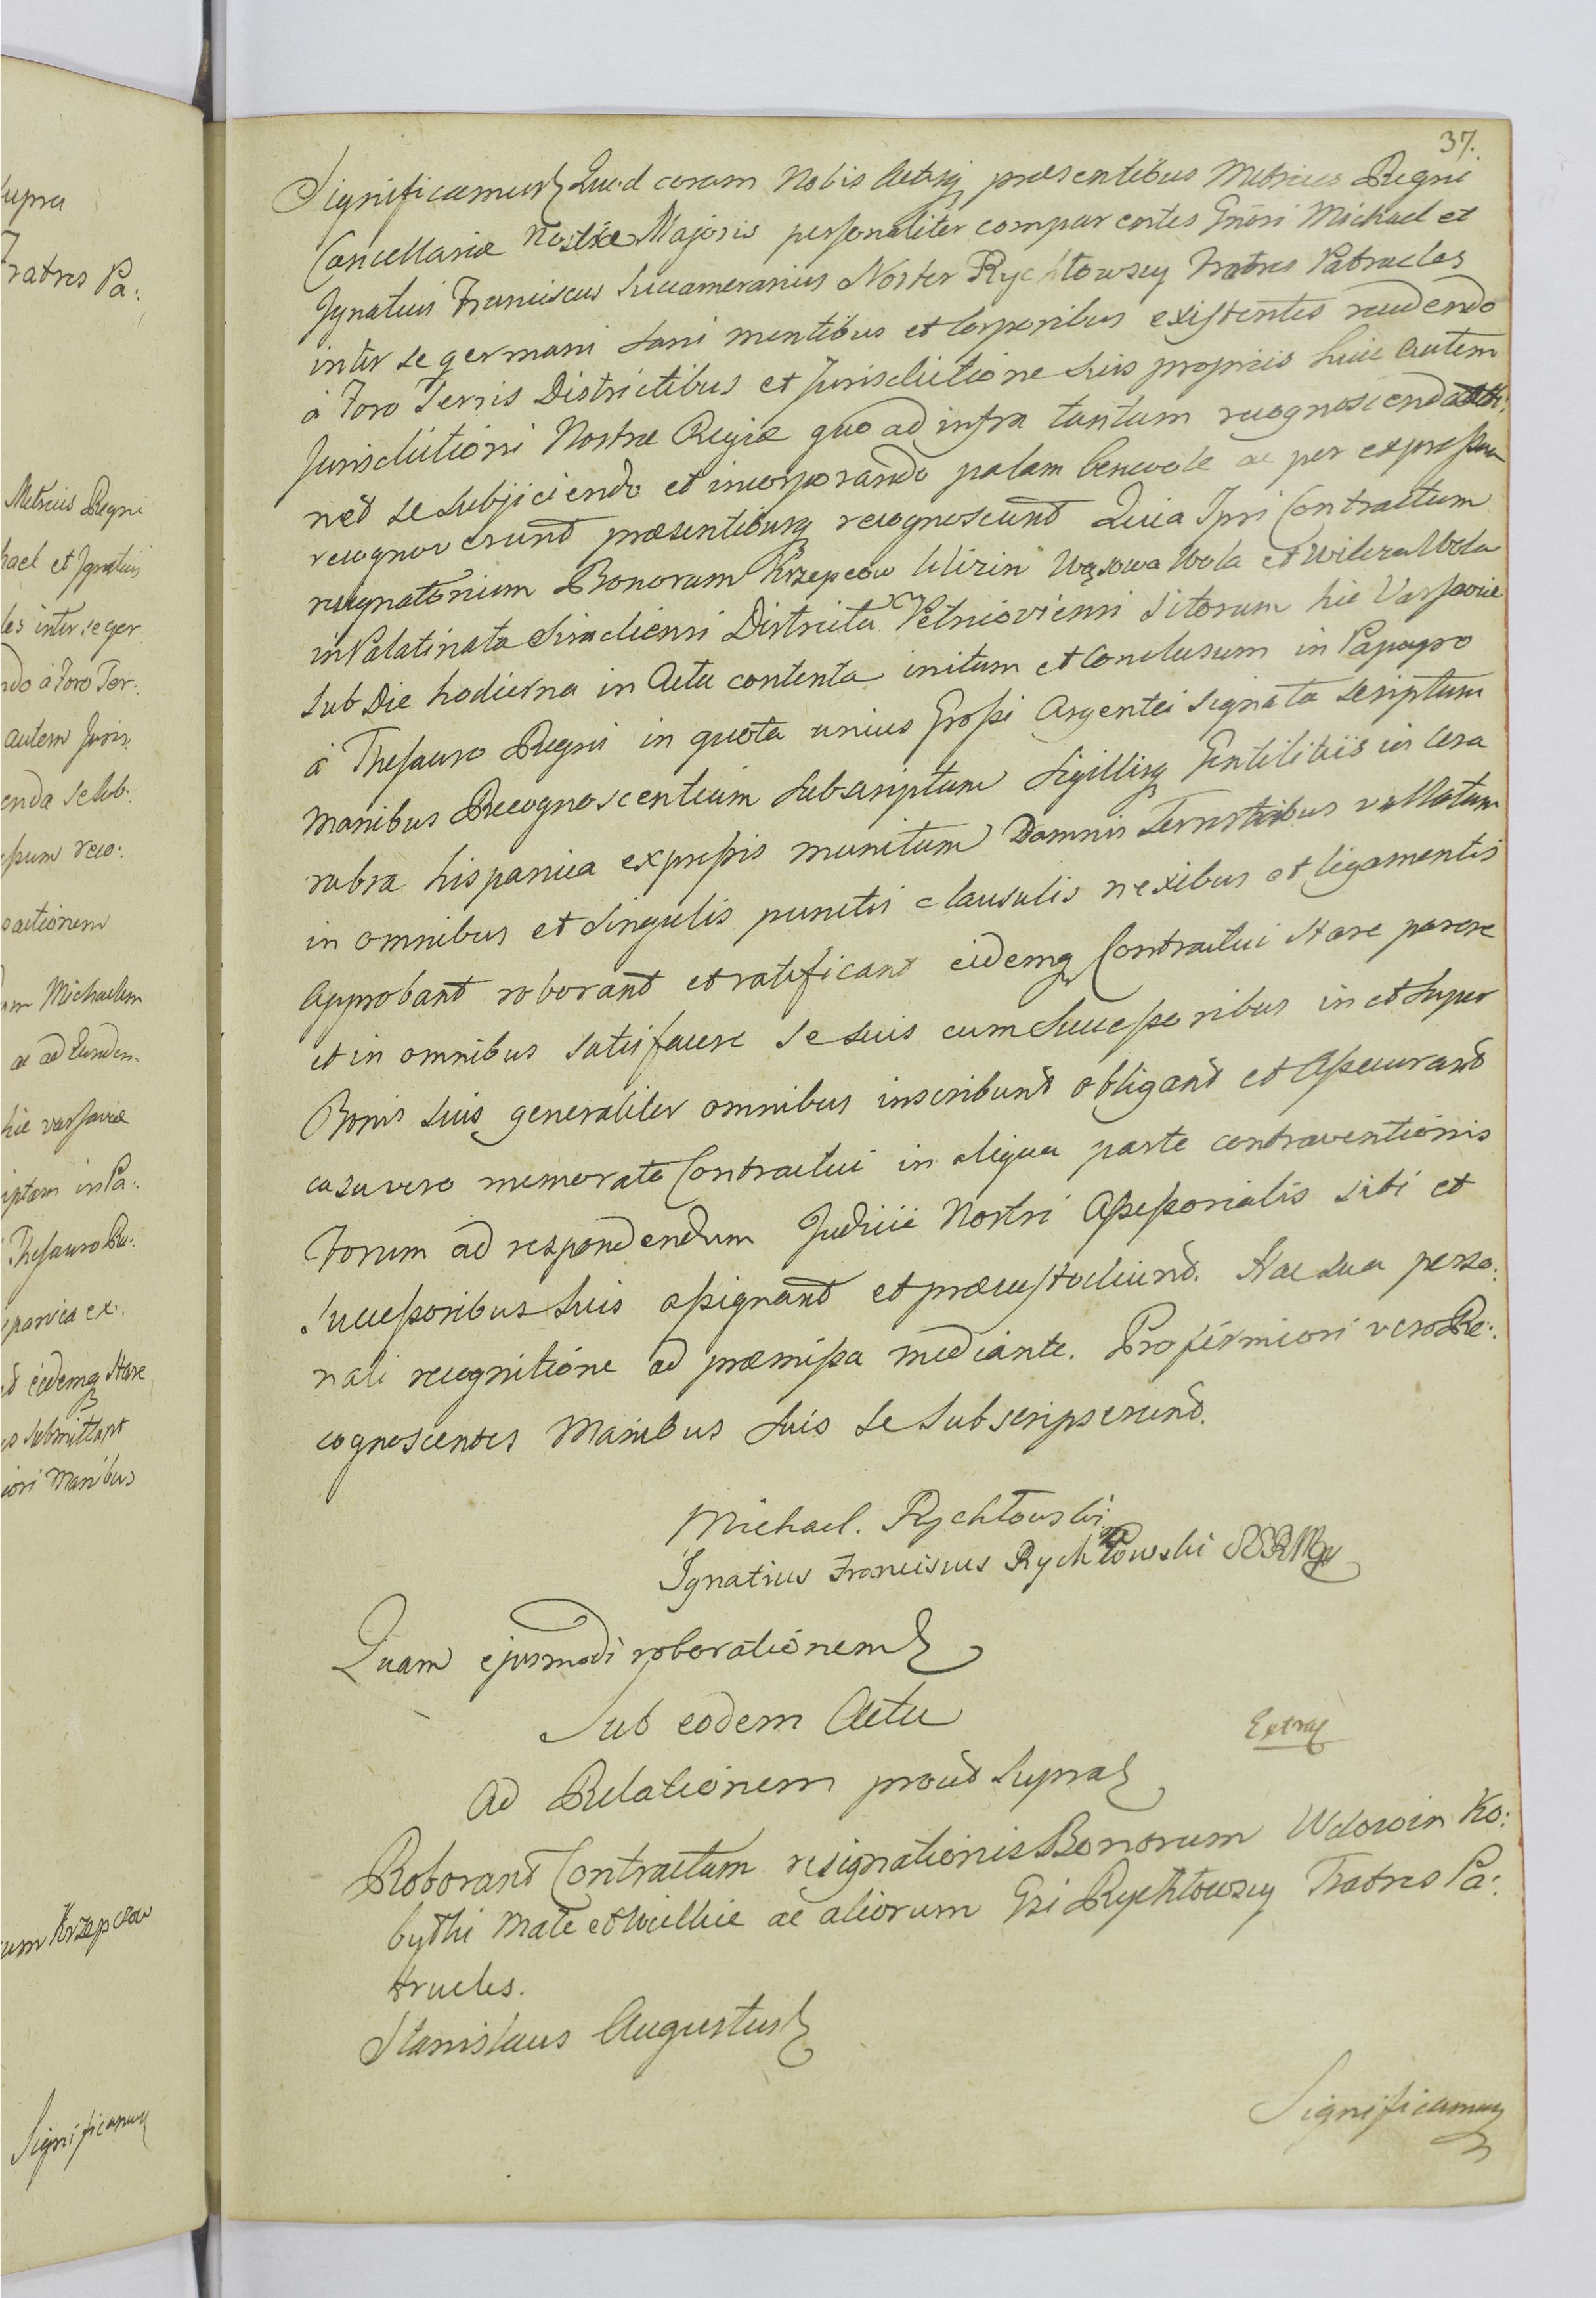 upra
ratres Pa:
Metricis Regni
hael et Ignatius
les inter se ger:
ndo à Foro Ter:
autem Juris
enda se sub:
ssum reco:
sactionem
um Michaelem
ac ad eunden
hic varsaviæ
iptam in Pa:
Thesauro Re:
ispanica ex:
eidemq stare
submittunt
iori Manibus
um Krzepczow
Significamus
37.
Significamus Quod coram Nobis Actisq præsentibus Metricis Regni
Cancellariæ Nostræ Majoris personaliter comparentes Gnosi Michael et
Ignatius Franciscus Succamerarius Noster Rychłowscy Fratres Patrueles
inter se germani sani mentibus et Corporibus existentes recedendo
à Foro Terris Districtibus et Jurisdictione suis propriis huic autem
Jurisdictioni Nostræ Regiæ quo ad infra tantum recognoscenda atti:
net se subjiciendo et incorporando palam benevole ac per expressum
recognoverunt præsentibusq recognoscunt Quia Ipsi Contractum
resignatorium Bonorum Krzepczow Wirzin Wąsowa Wola et Wilcza Wola
in Palatinatu Siradiensi Districtu Petricoviensi sitorum hic Varsaviæ
sub Die hodierna in Actu contenta initum et Conclusum in Papyro
à Thesauro Regni in quota unius Grossi Argentei signata scriptum
Manibus Recognoscentium subscriptum Sigillisq Gentilitiis in Cera
rubra hispanica expressis munitum Damnis Terrestribus vallatum
in omnibus et singulis punctis clausulis nexibus et ligamentis
Approbant roborant et ratificant eidemq Contractui stare parere
et in omnibus satisfacere se suis cum Successoribus in et super
Bonis suis generaliter omnibus inscribunt obligant et Assecurant
casu vero memorato Contractui in aliqua parte contraventionis
Forum ad respondendum Judicii Nostri Assessorialis sibi et
Successoribus suis assignant et præcustodiunt. Hac sua perso:
nali recognitione ad præmissa mediante. Pro firmiori vero Re:
cognoscentes Manibus suis se subscripserunt.
Michael. Rychłowski mp
Ignatius Franciscus Rychłowski
Quam ejusmodi roborationem
Sub eodem Actu
Extrad
Ad Relationem prout supra
Roborant Contractum resignationis Bonorum Wdowin Ko:
bythi Małe et Wielkie ac aliorum Gsi Rychłowscy Fratres Pa:
trueles.
Stanislaus Augustus
Significamus